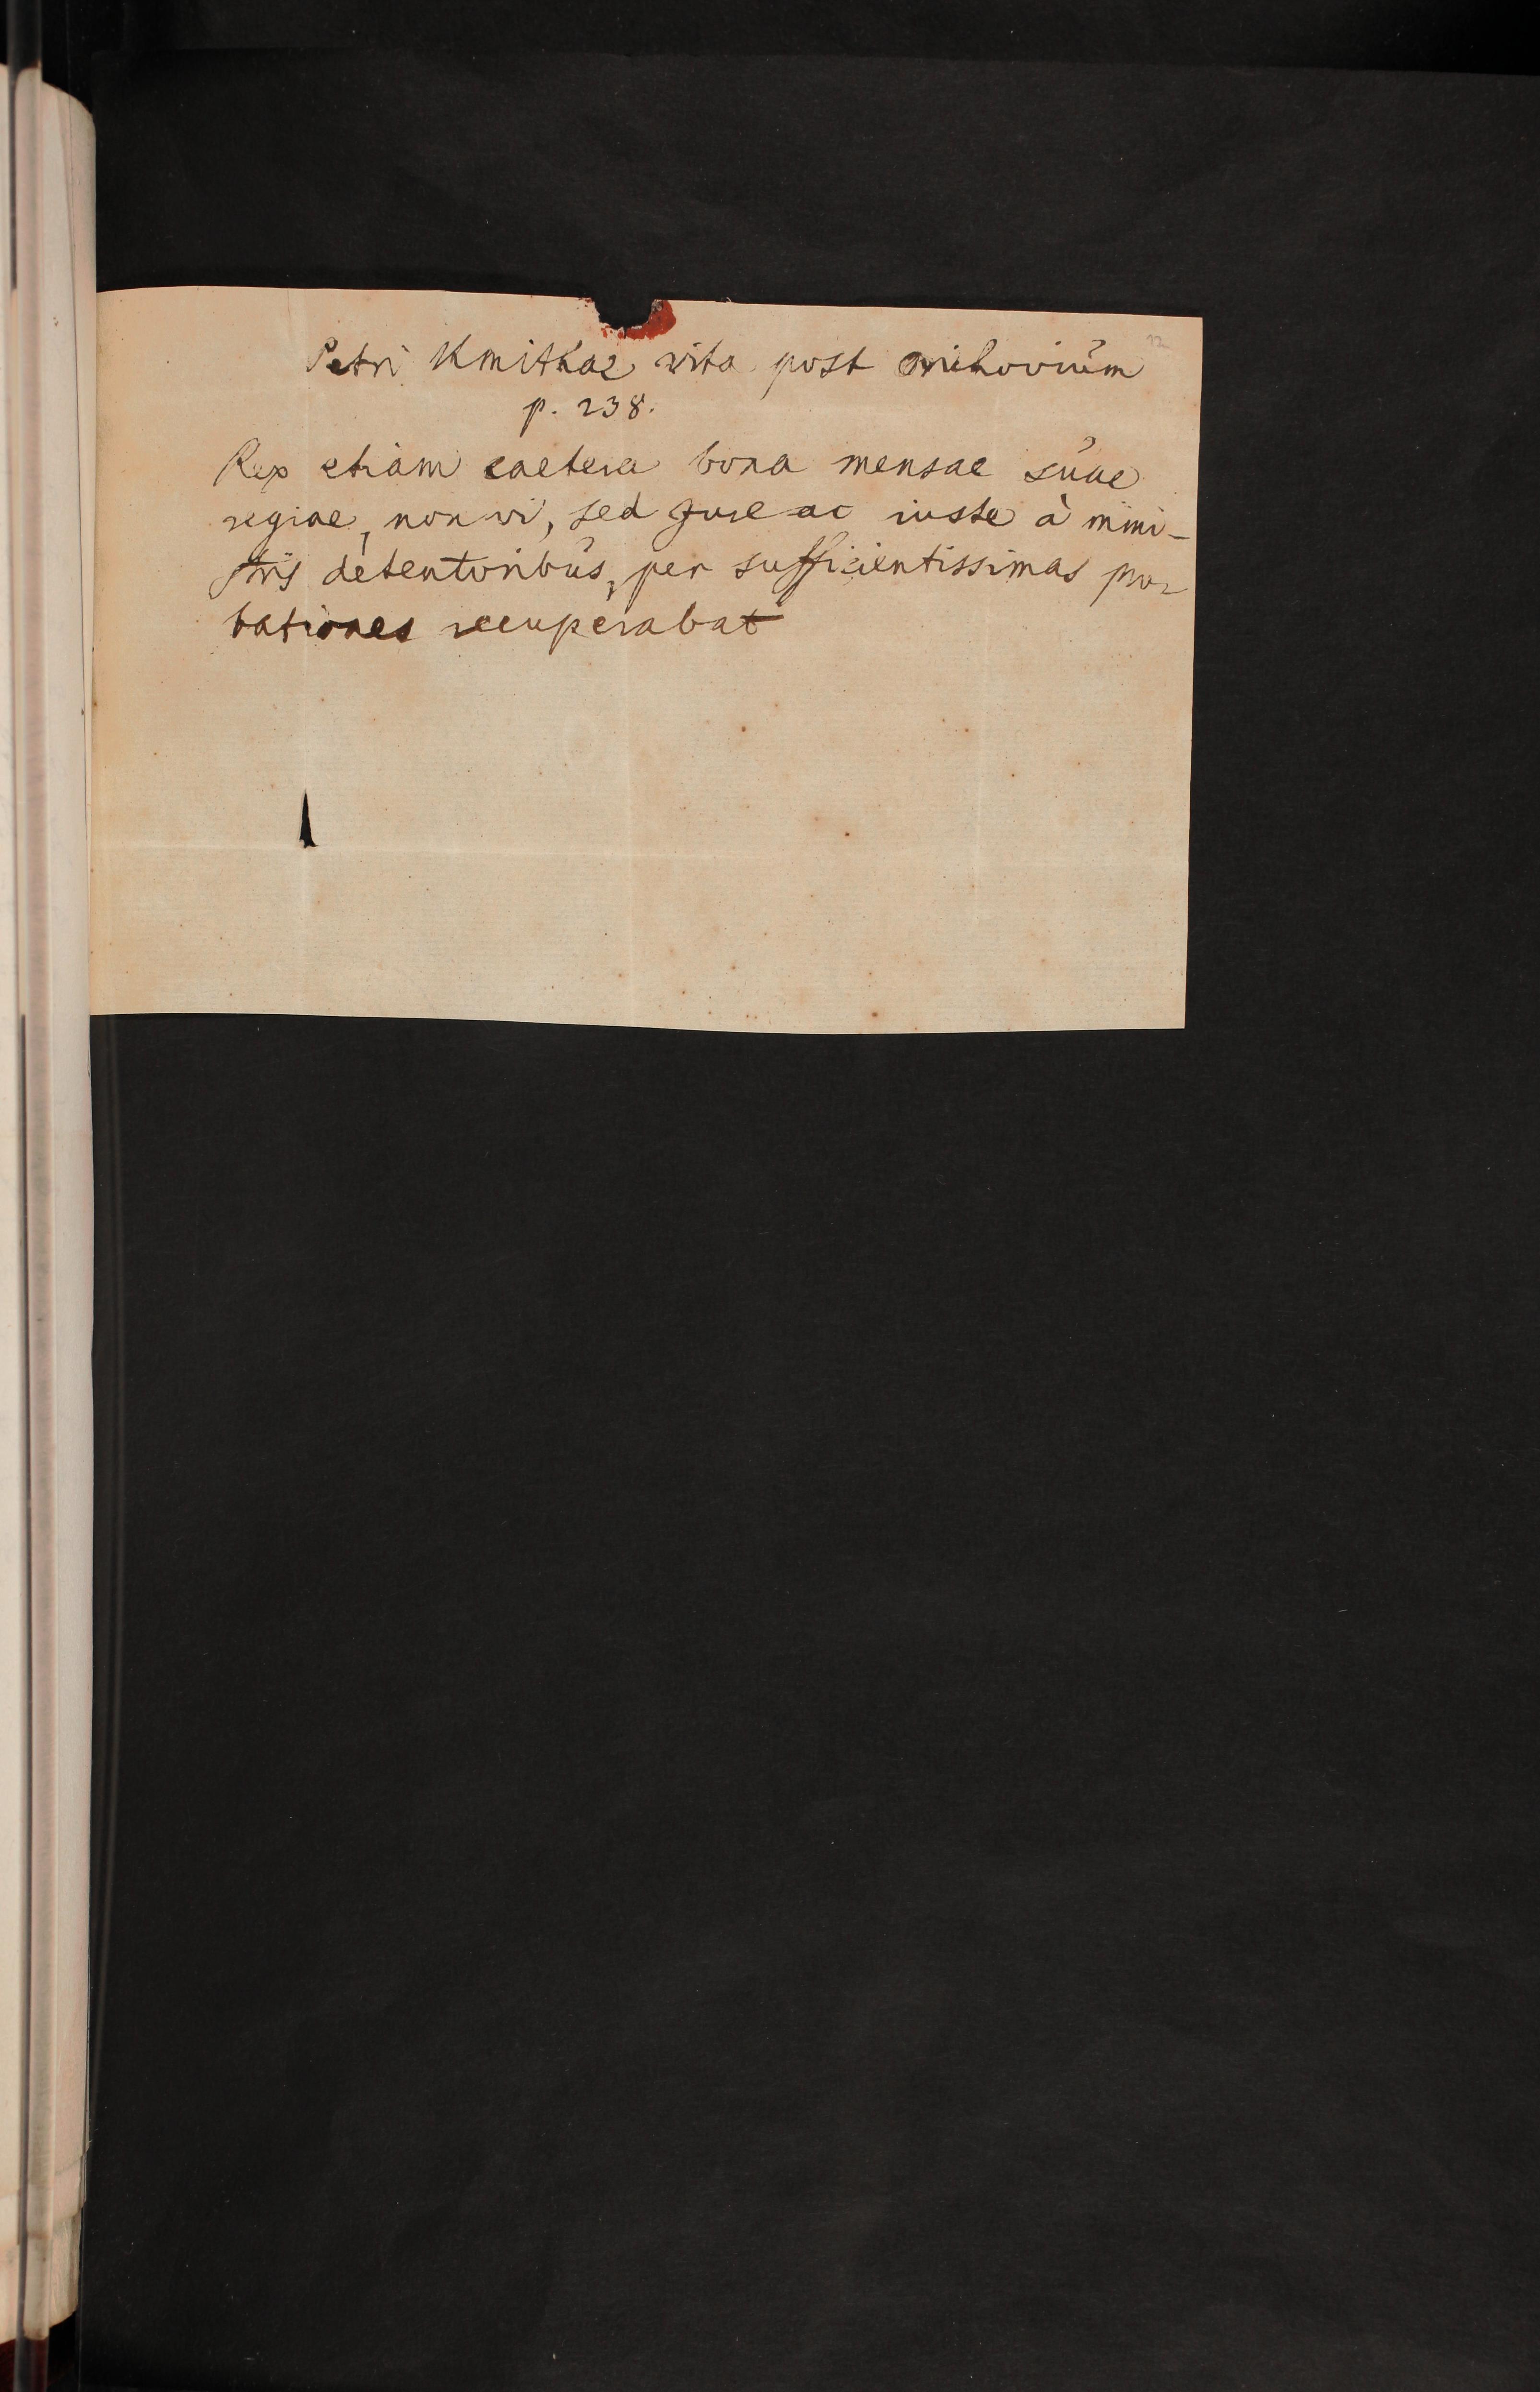 Petri Kmithae vita post orichovium
p. 238.
Rex etiam caetera bona mensae suae
regiae, non vi, sed jure ac iuste à mini-
stris detentoribus, per sufficientissimas pro-
bationes recuperabat